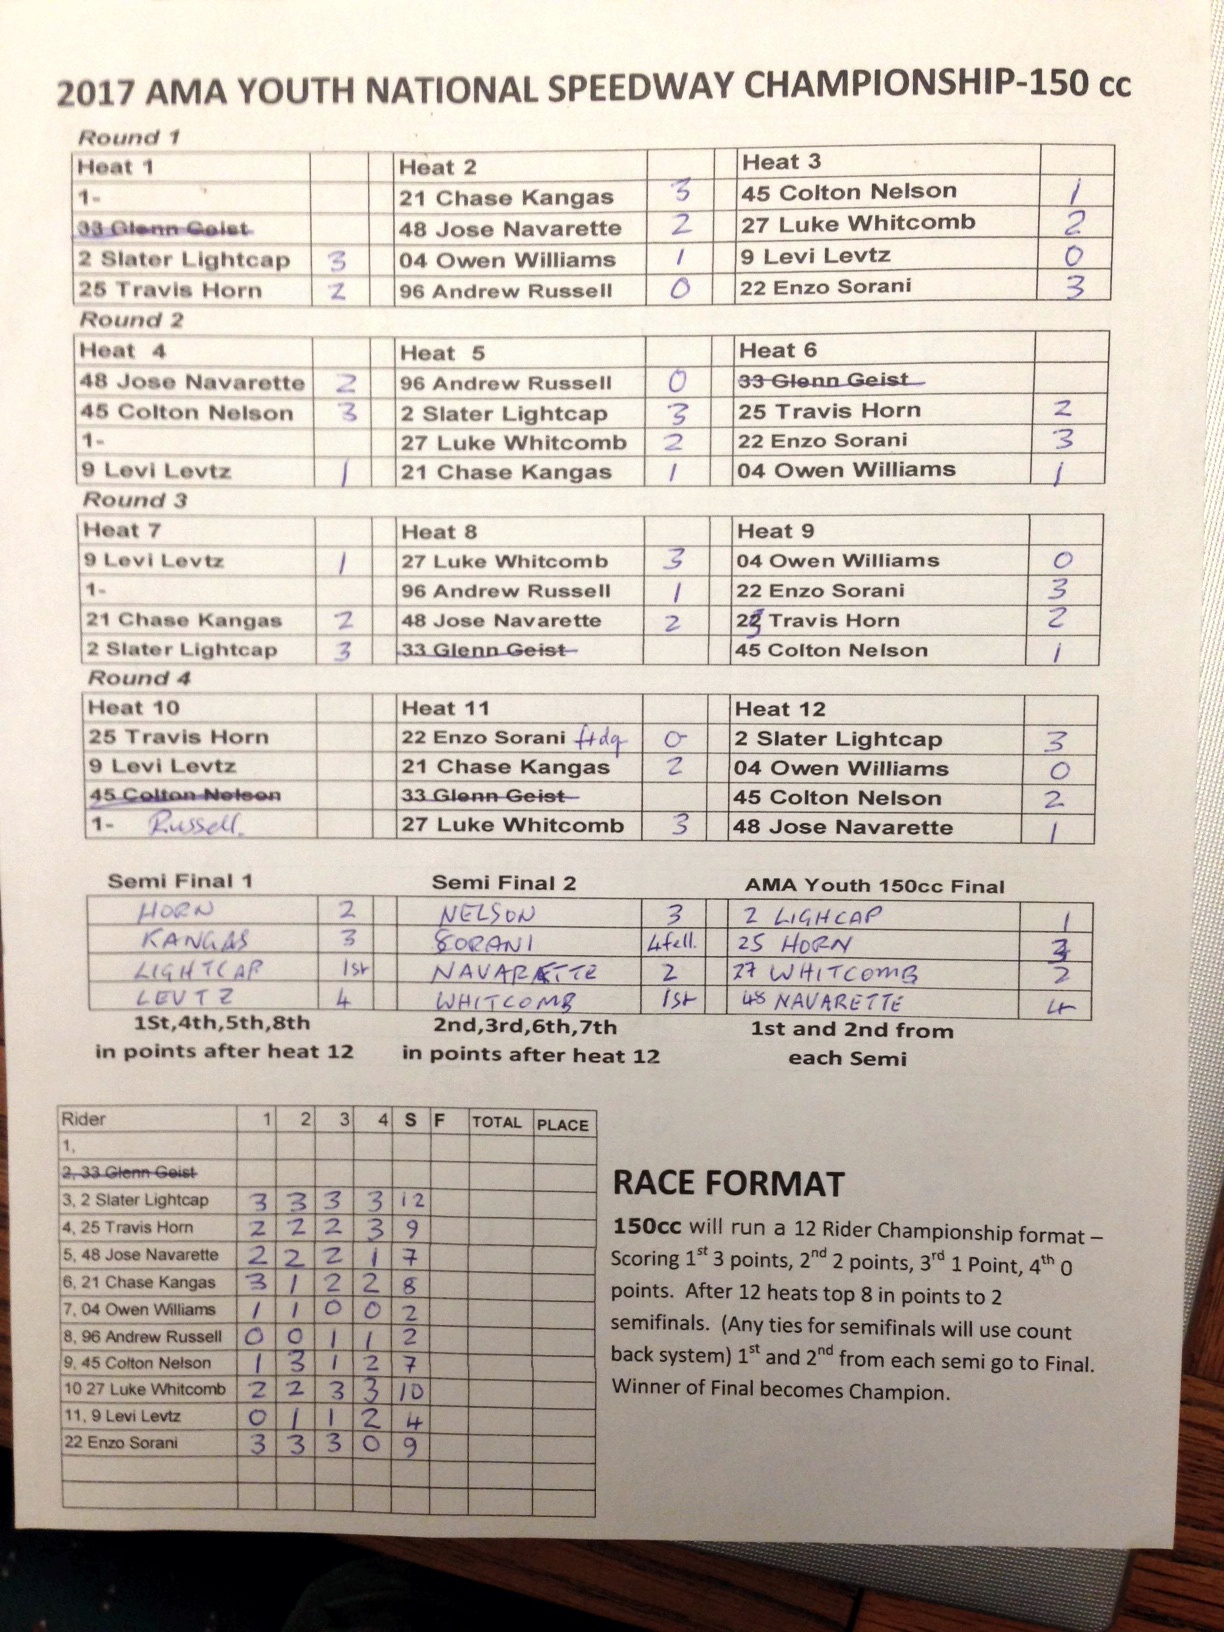 2017 AMA YOUTH NATIONAL SPEEDWAY CHAMPIONSHIP-150 cc
Round 1
Heat 1 Heat 2 Heat 3
1- 21 Chase Kangas 3 45 Colton Nelson 1
33 Glenn Geist 48 Jose Navarette 2 27 Luke Whitcomb 2
2 Slater Lightcap 3 04 Owen Williams 1 9 Levi Levtz 0
25 Travis Horn 2 96 Andrew Russell 0 22 Enzo Sorani 3
Round 2
Heat 4 Heat 5 Heat 6
48 Jose Navarette 2 96 Andrew Russell 0 33 Glenn Geist
45 Colton Nelson 3 2 Slater Lightcap 3 25 Travis Horn 2
1- 27 Luke Whitcomb 2 22 Enzo Sorani 3
9 Levi Levtz 1 21 Chase Kangas 1 04 Owen Williams 1
Round 3
Heat 7 Heat 8 Heat 9
9 Levi Levtz 1 27 Luke Whitcomb 3 04 Owen Williams 0
1- 96 Andrew Russell 1 22 Enzo Sorani 3
21 Chase Kangas 2 48 Jose Navarette 2 25 Travis Horn 2
2 Slater Lightcap 3 33 Glenn Geist 45 Colton Nelson 1
Round 4
Heat 10 Heat 11 Heat 12
25 Travis Horn 22 Enzo Sorani ftdq 0 2 Slater Lightcap 3
9 Levi Levtz 21 Chase Kangas 2 04 Owen Williams 0
45 Colton Nelson 33 Glenn Geist 45 Colton Nelson 2
1- Russell. 27 Luke Whitcomb 3 48 Jose Navarette 1
Semi Final 1 Semi Final 2 AMA Youth 150cc Final
HORN 2 NELSON 3 2 LIGHCAP 1
KANGAS 3 SORANI 4 fell. 25 HORN 3
LIGHTCAP 1st NAVARETTE 2 27 WHITCOMB 2
LEVTZ 4 WHITCOMB 1st 48 NAVARETTE 4
1St,4th,5th,8th 2nd,3rd,6th,7th 1st and 2nd from
in points after heat 12 in points after heat 12 each Semi
Rider 1 2 3 4 S F TOTAL PLACE
1,
2, 33 Glenn Geist
3, 2 Slater Lightcap 3 3 3 3 12
4, 25 Travis Horn 2 2 2 3 9
5, 48 Jose Navarette 2 2 2 1 7
6, 21 Chase Kangas 3 1 2 2 8
7, 04 Owen Williams 1 1 0 0 2
8, 96 Andrew Russell 0 0 1 1 2
9, 45 Colton Nelson 1 3 1 2 7
10 27 Luke Whitcomb 2 2 3 3 10
11, 9 Levi Levtz 0 1 1 2 4
22 Enzo Sorani 3 3 3 0 9
RACE FORMAT
150cc will run a 12 Rider Championship format –
Scoring 1st 3 points, 2nd 2 points, 3rd 1 Point, 4th 0
points. After 12 heats top 8 in points to 2
semifinals. (Any ties for semifinals will use count
back system) 1st and 2nd from each semi go to Final.
Winner of Final becomes Champion.